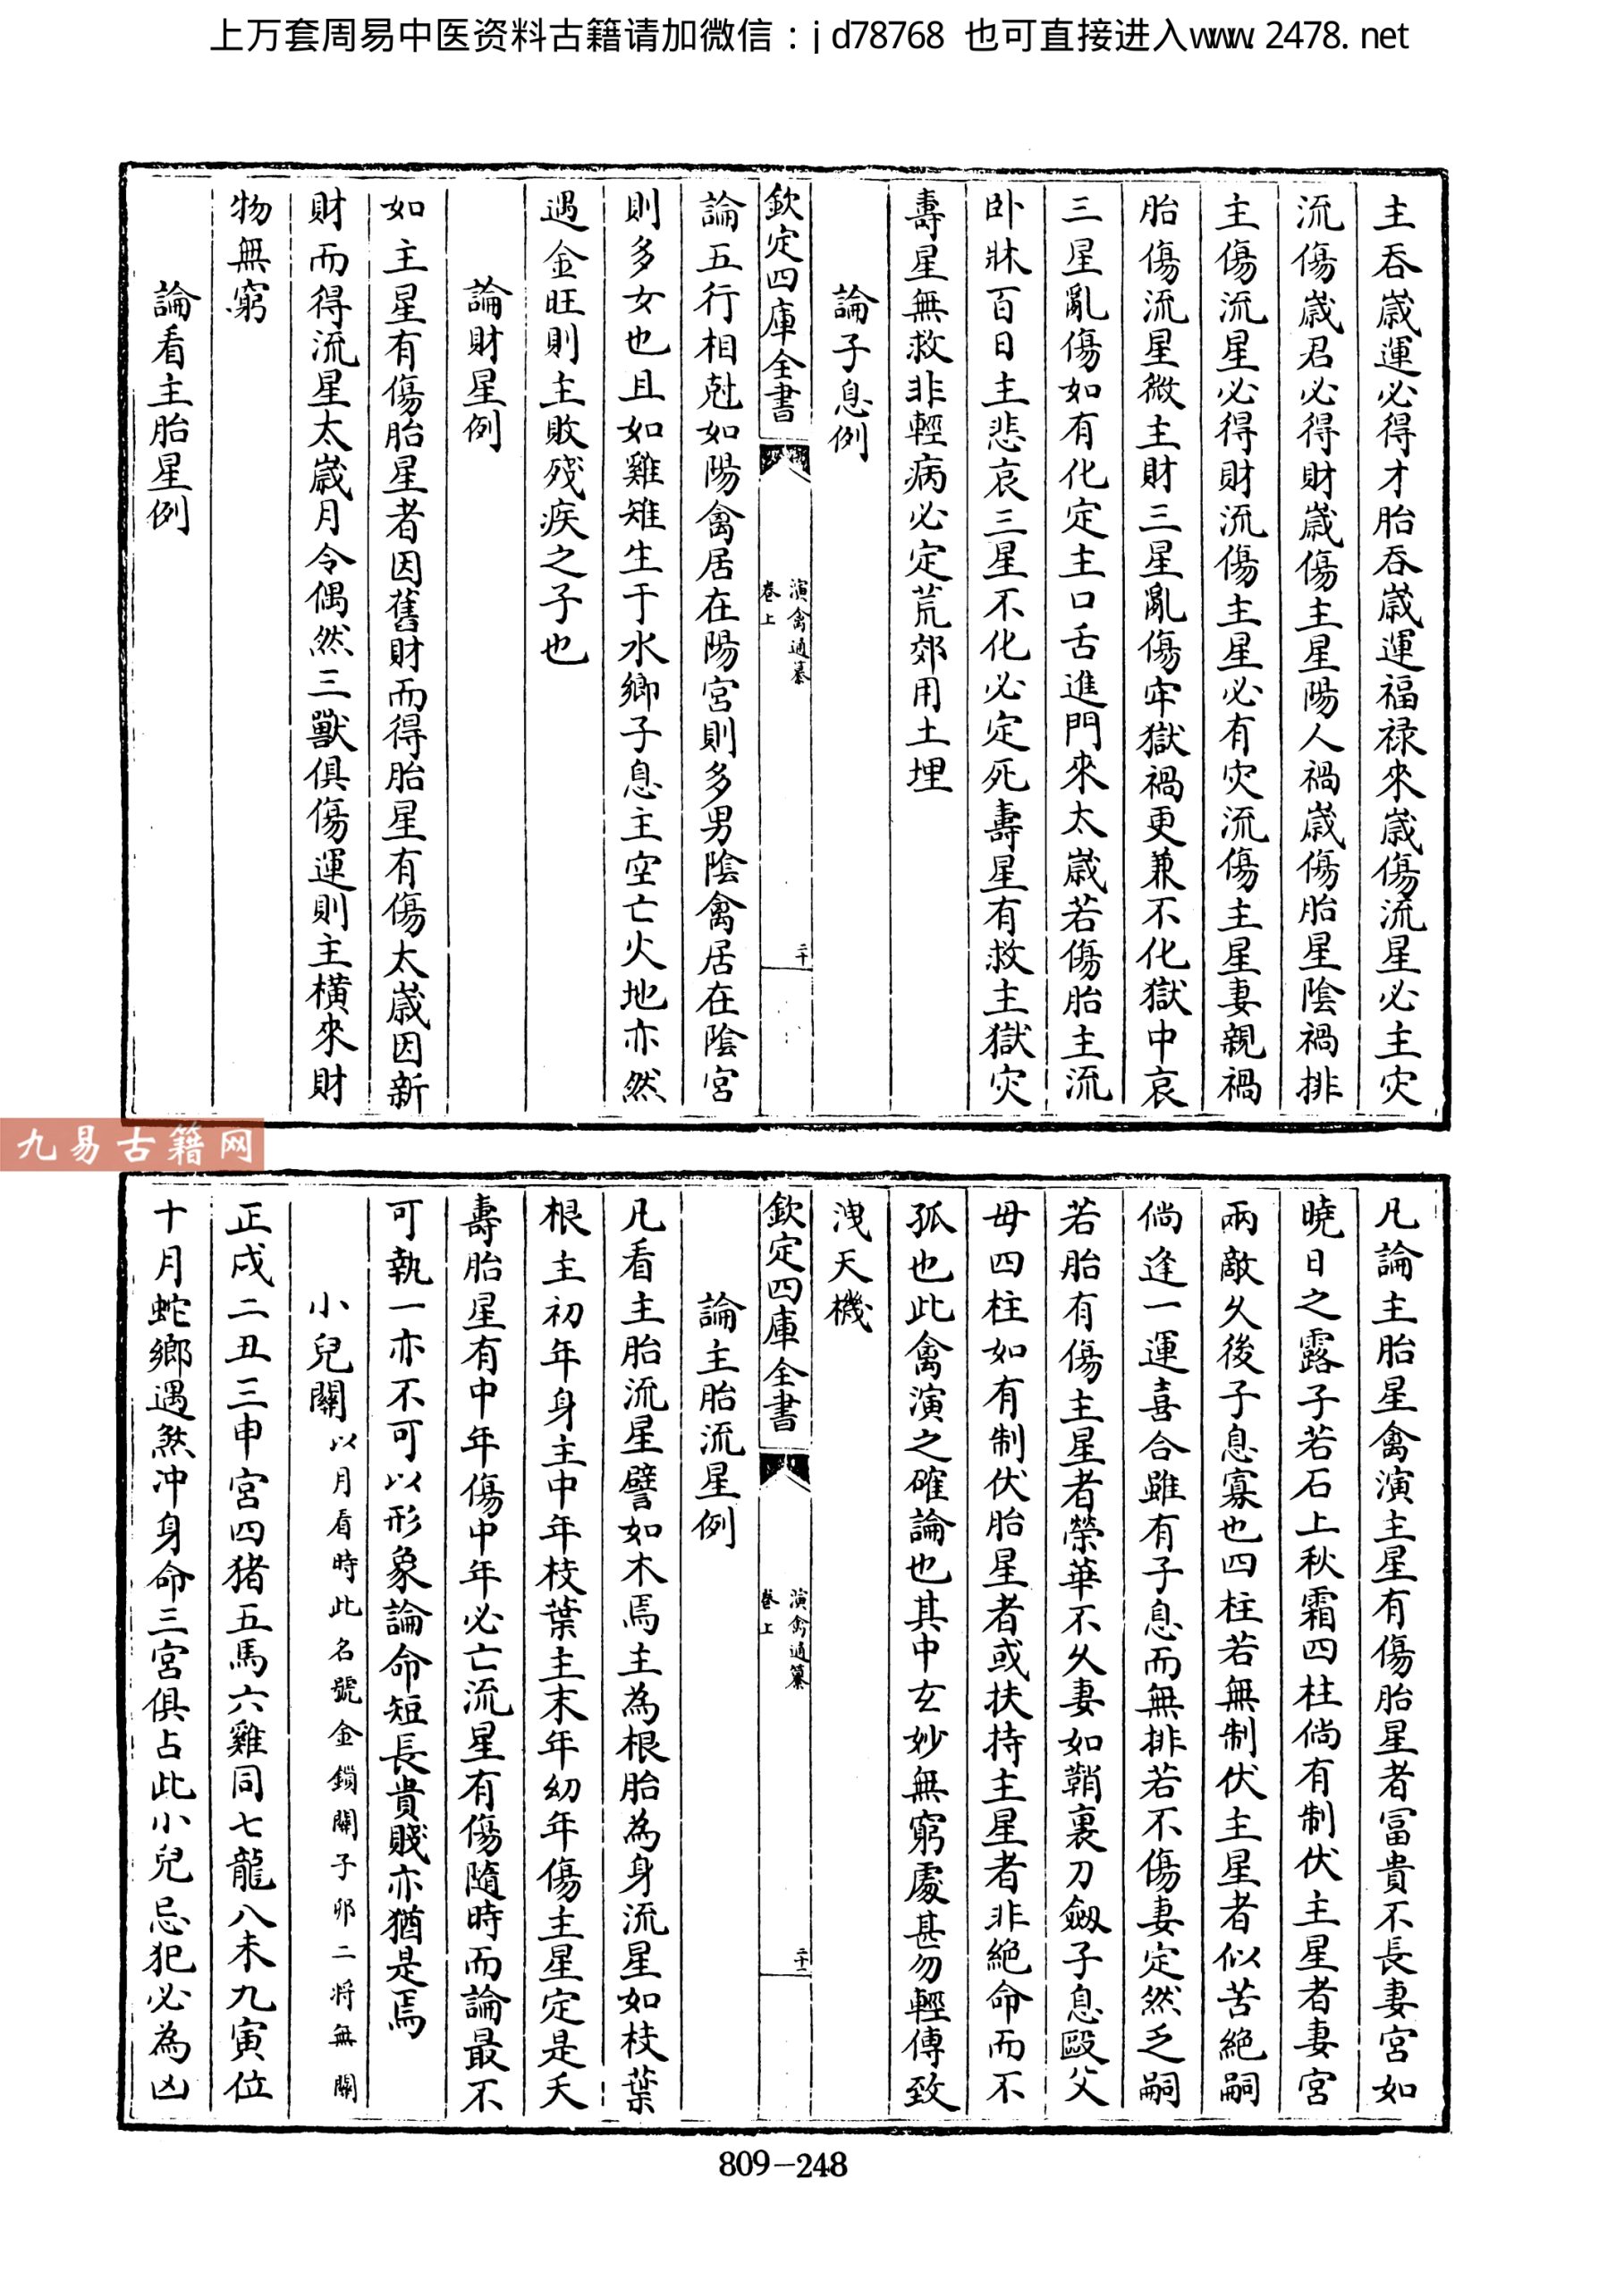 上万套周易中医资料古籍请加微信：jd78768 也可直接进入www.2478.net
主吞歲運必得才胎吞歲運福祿來歲傷流星必主灾
流傷歲君必得財歲傷主星陽人禍歲傷胎星陰禍排
主傷流星必得財流傷主星必有灾流傷主星妻親禍
胎傷流星微主財三星亂傷牢獄禍更兼不化獄中哀
三星亂傷如有化定主口舌進門來太歲若傷胎主流
卧牀百日主悲哀三星不化必定死壽星有救主獄灾
壽星無救非輕病必定荒郊用土埋
論子息例
欽定四庫全書
演禽通纂
卷上
二十
論五行相尅如陽禽居在陽宮則多男陰禽居在陰宮
則多女也且如雞雉生于水鄉子息主空亡火地亦然
遇金旺則主敗殘疾之子也
論財星例
如主星有傷胎星者因舊財而得胎星有傷太歲因新
財而得流星太歲月令偶然三獸俱傷運則主橫來財
物無窮
論看主胎星例
九易古籍网
凡論主胎星禽演主星有傷胎星者富貴不長妻宮如
曉日之露子若石上秋霜四柱倘有制伏主星者妻宮
兩敵久後子息寡也四柱若無制伏主星者似苦絕嗣
倘逢一運喜合雖有子息而無排若不傷妻定然乏嗣
若胎有傷主星者榮華不久妻如鞘裏刀劔子息毆父
母四柱如有制伏胎星者或扶持主星者非絕命而不
孤也此禽演之確論也其中玄妙無窮處甚勿輕傳致
洩天機
欽定四庫全書
演禽通纂
卷上
二十一
論主胎流星例
凡看主胎流星譬如木焉主為根胎為身流星如枝葉
根主初年身主中年枝葉主末年幼年傷主星定是夭
壽胎星有中年傷中年必亡流星有傷隨時而論最不
可執一亦不可以形象論命短長貴賤亦猶是焉
小兒關 以月看時此名號金鎖關子卯二將無關
正戌二丑三申宮四猪五馬六雞同七龍八未九寅位
十月蛇鄉遇煞冲身命三宮俱占此小兒忌犯必為凶
809-248